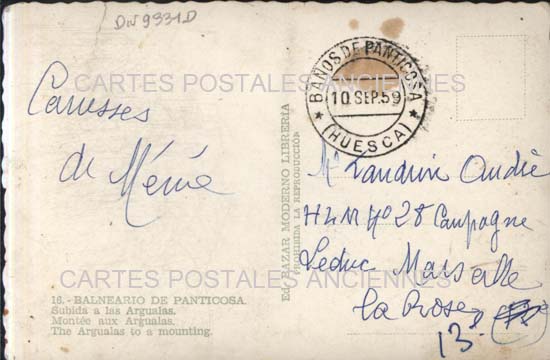 DN9331D
CARTES POSTALES ANCIENNES
BAÑOS DE PANTICOSA
10 SEP. 59
(HUESCA)
Caresses
de Mémé
Ed. BAZAR MODERNO LIBRERIA
PROHIBIDA LA REPRODUCCIÓN
Mr Landrin André
HLM No 28 Campagne
Leduc Marseille
la Rose
13e
CARTES POSTALES ANCIENNES
16.-BALNEARIO DE PANTICOSA.
Subida a las Argualas.
Montée aux Argualas.
The Argualas to a mounting.